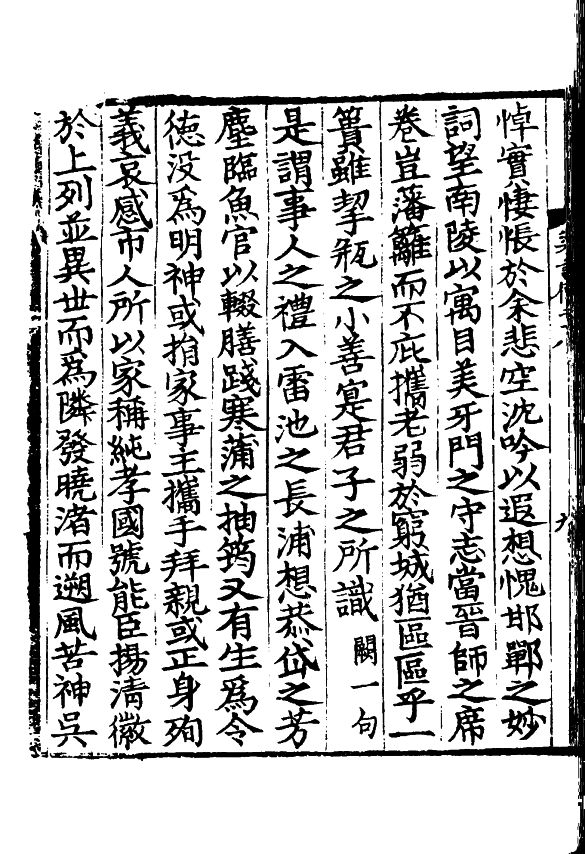 悼實悽悵於余悲空沈吟以遐想愧邯鄲之妙
詞望南陵以寓目美牙門之守志當晉師之席
卷豈藩籬而不庇攜老弱於窮城猶區區乎一
簣雖挈瓶之小善寔君子之所識 闕一句
是謂事人之禮入雷池之長浦想恭岱之芳
塵臨魚官以輟膳踐寒蒲之抽筠又有生爲令
德没爲明神或捐家事主攜手拜親或正身殉
義哀感市人所以家稱純孝國號能臣揚清徽
於上列並異世而爲隣發曉渚而遡風苦神吳